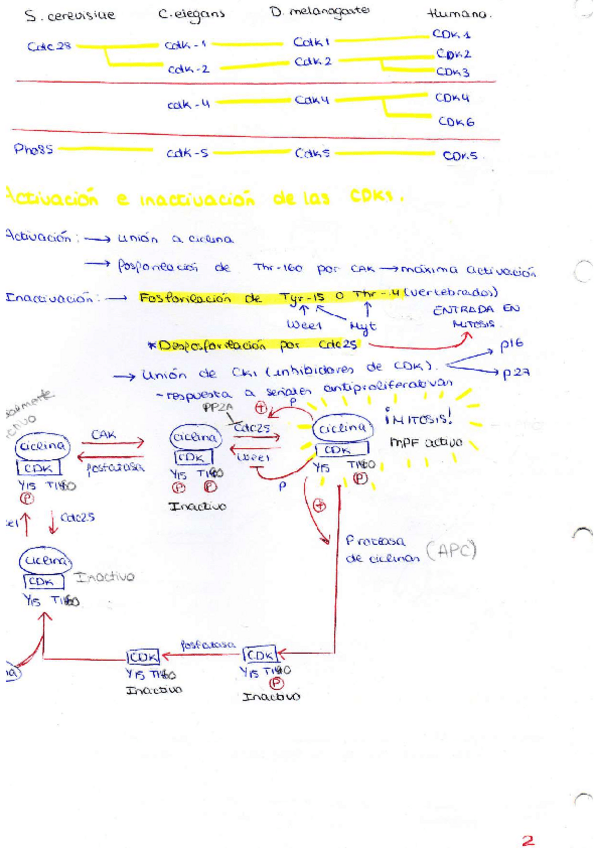 S. cerevisiae C. elegans D. melanogaster Humano.
Cdc28 Cdk-1 Cdk1 CDK1
cdk-2 Cdk2 CDK2
CDK3
cdk-4 Cdk4 CDK4
CDK6
Pho85 cdk-5 Cdk5 CDK5.
Activación e inactivación de las CDKs.
Activación: → unión a ciclina
→ fosforilación de Thr-160 por CAK → máxima activación
Inactivación: → Fosforilación de Tyr-15 o Thr-14 (vertebrados)
Wee1 Myt
ENTRADA EN
MITOSIS.
* Desfosforilación por Cdc25
p16
→ Unión de CKI (inhibidores de CDK).
p27
- respuesta a señales antiproliferativas
PP2A + P
CAK ciclina Cdc25 ciclina ¡MITOSIS!
ciclina fosfatasa CDK Wee1 CDK MPF activo
CDK Y15 T160 P Y15 T160
Y15 T160 P P P
P Inactivo
Cdc25 +
Proteosa
de ciclinas (APC)
ciclina
CDK Inactivo
Y15 T160
fosfatasa
CDK CDK
Y15 T160 Y15 T160
P
Inactivo Inactivo
2